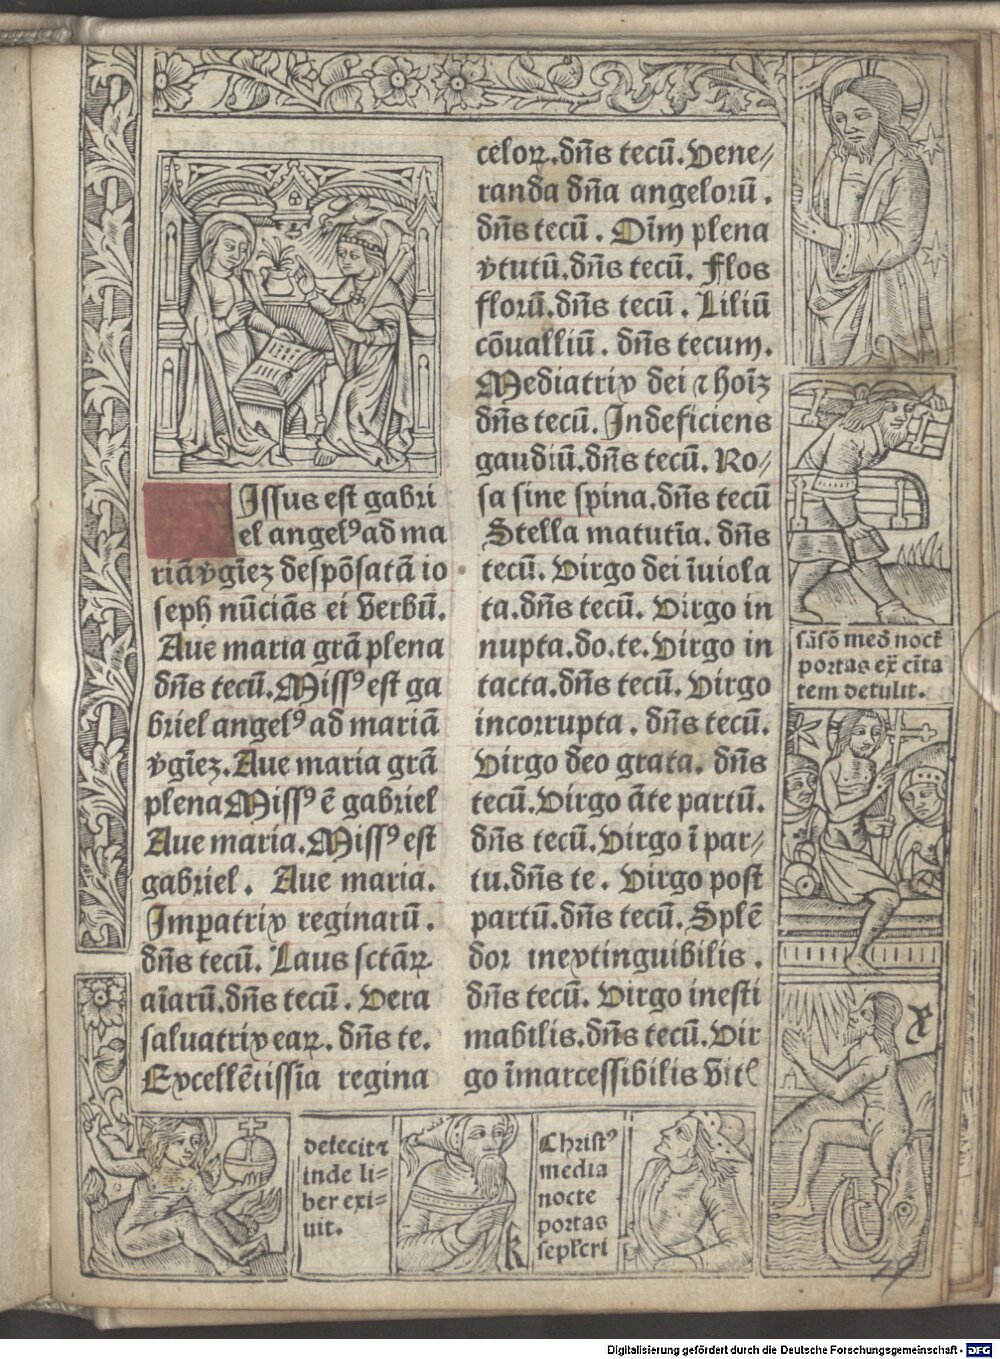 Issus est gabri
el angelꝰ ad ma
riā v̄gīeꝫ despōsatā io
seph nūciās ei v̄erbū.
Aue maria grā plena
dn̄s tecū. Missꝰ est ga
briel angelꝰ ad mariā
v̄gīeꝫ. Aue maria grā
plena Missꝰ ē gabriel
Aue maria. Missꝰ est
gabriel. Aue maria.
Imꝑatrix reginarū.
dn̄s tecū. Laus sctāꝝ
aīarū. dn̄s tecū. Vera
saluatrix eaꝝ. dn̄s te.
Excellētissīa regina
celoꝝ. dn̄s tecū. Vene⸗
randa dn̄a angelorū.
dn̄s tecū. Oīm plena
v̄tutū. dn̄s tecū. Flos
florū. dn̄s tecū. Liliū
cōualliū. dn̄s tecum.
Mediatrix dei ⁊ hoīꝫ
dn̄s tecū. Indeficiens
gaudiū. dn̄s tecū. Ro⸗
sa sine spina. dn̄s tecū
Stella matutīa. dn̄s
tecū. Virgo dei īuiola
ta. dn̄s tecū. Virgo in
nupta. do. te. Virgo in
tacta. dn̄s tecū. Virgo
incorrupta. dn̄s tecū.
Virgo deo grata. dn̄s
tecū. Virgo āte partū.
dn̄s tecū. Virgo ī par⸗
tu. dn̄s te. Virgo post
partū. dn̄s tecū. Splē
dor inextinguibilis.
dn̄s tecū. Virgo inesti
mabilis. dn̄s tecū. Vir
go īmarcessibilis
sāsō med̄ noct̄
portas ex̄ cīta
tem detulit.
x
defecit ⁊
inde li⸗
ber exi⸗
uit.
k
Christꝰ
media
nocte
portas
sepl̄cri
79
Digitalisierung gefördert durch die Deutsche Forschungsgemeinschaft - DFG